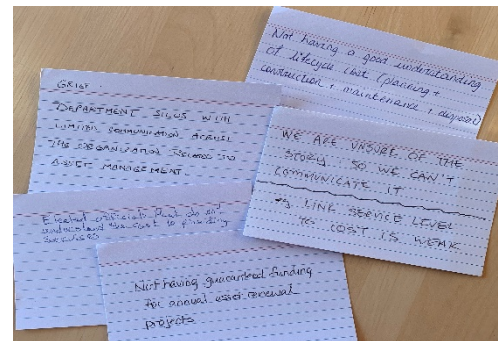 Not having a good understanding
of lifecycle cost (planning +
construction + maintenance + disposal)
GRIEF
DEPARTMENT SILOS WITH
LIMITED COMMUNICATION ACROSS
THE ORGANIZATION RELATED TO
ASSET MANAGEMENT
WE ARE UNSURE OF THE
STORY SO WE CAN'T
COMMUNICATE IT
LINK SERVICE LEVEL
TO COST IS WEAK
Elected officials that do not
understand the cost to providing
services
Not having guaranteed funding
for annual asset renewal
projects